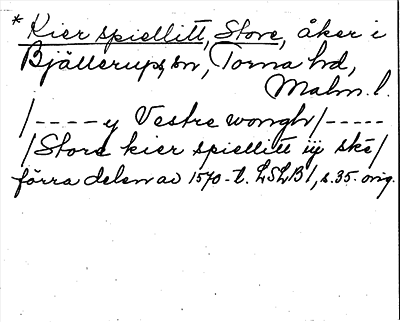 * Kier spiellitt, Store, åker i
Bjällerups sn, Torna hd,
Malm. l.
/---- y Vestre wongh/-----
/Store kier spiellitt iij ske/
förra delen av 1570-t. LSLB 1, s. 35. orig.